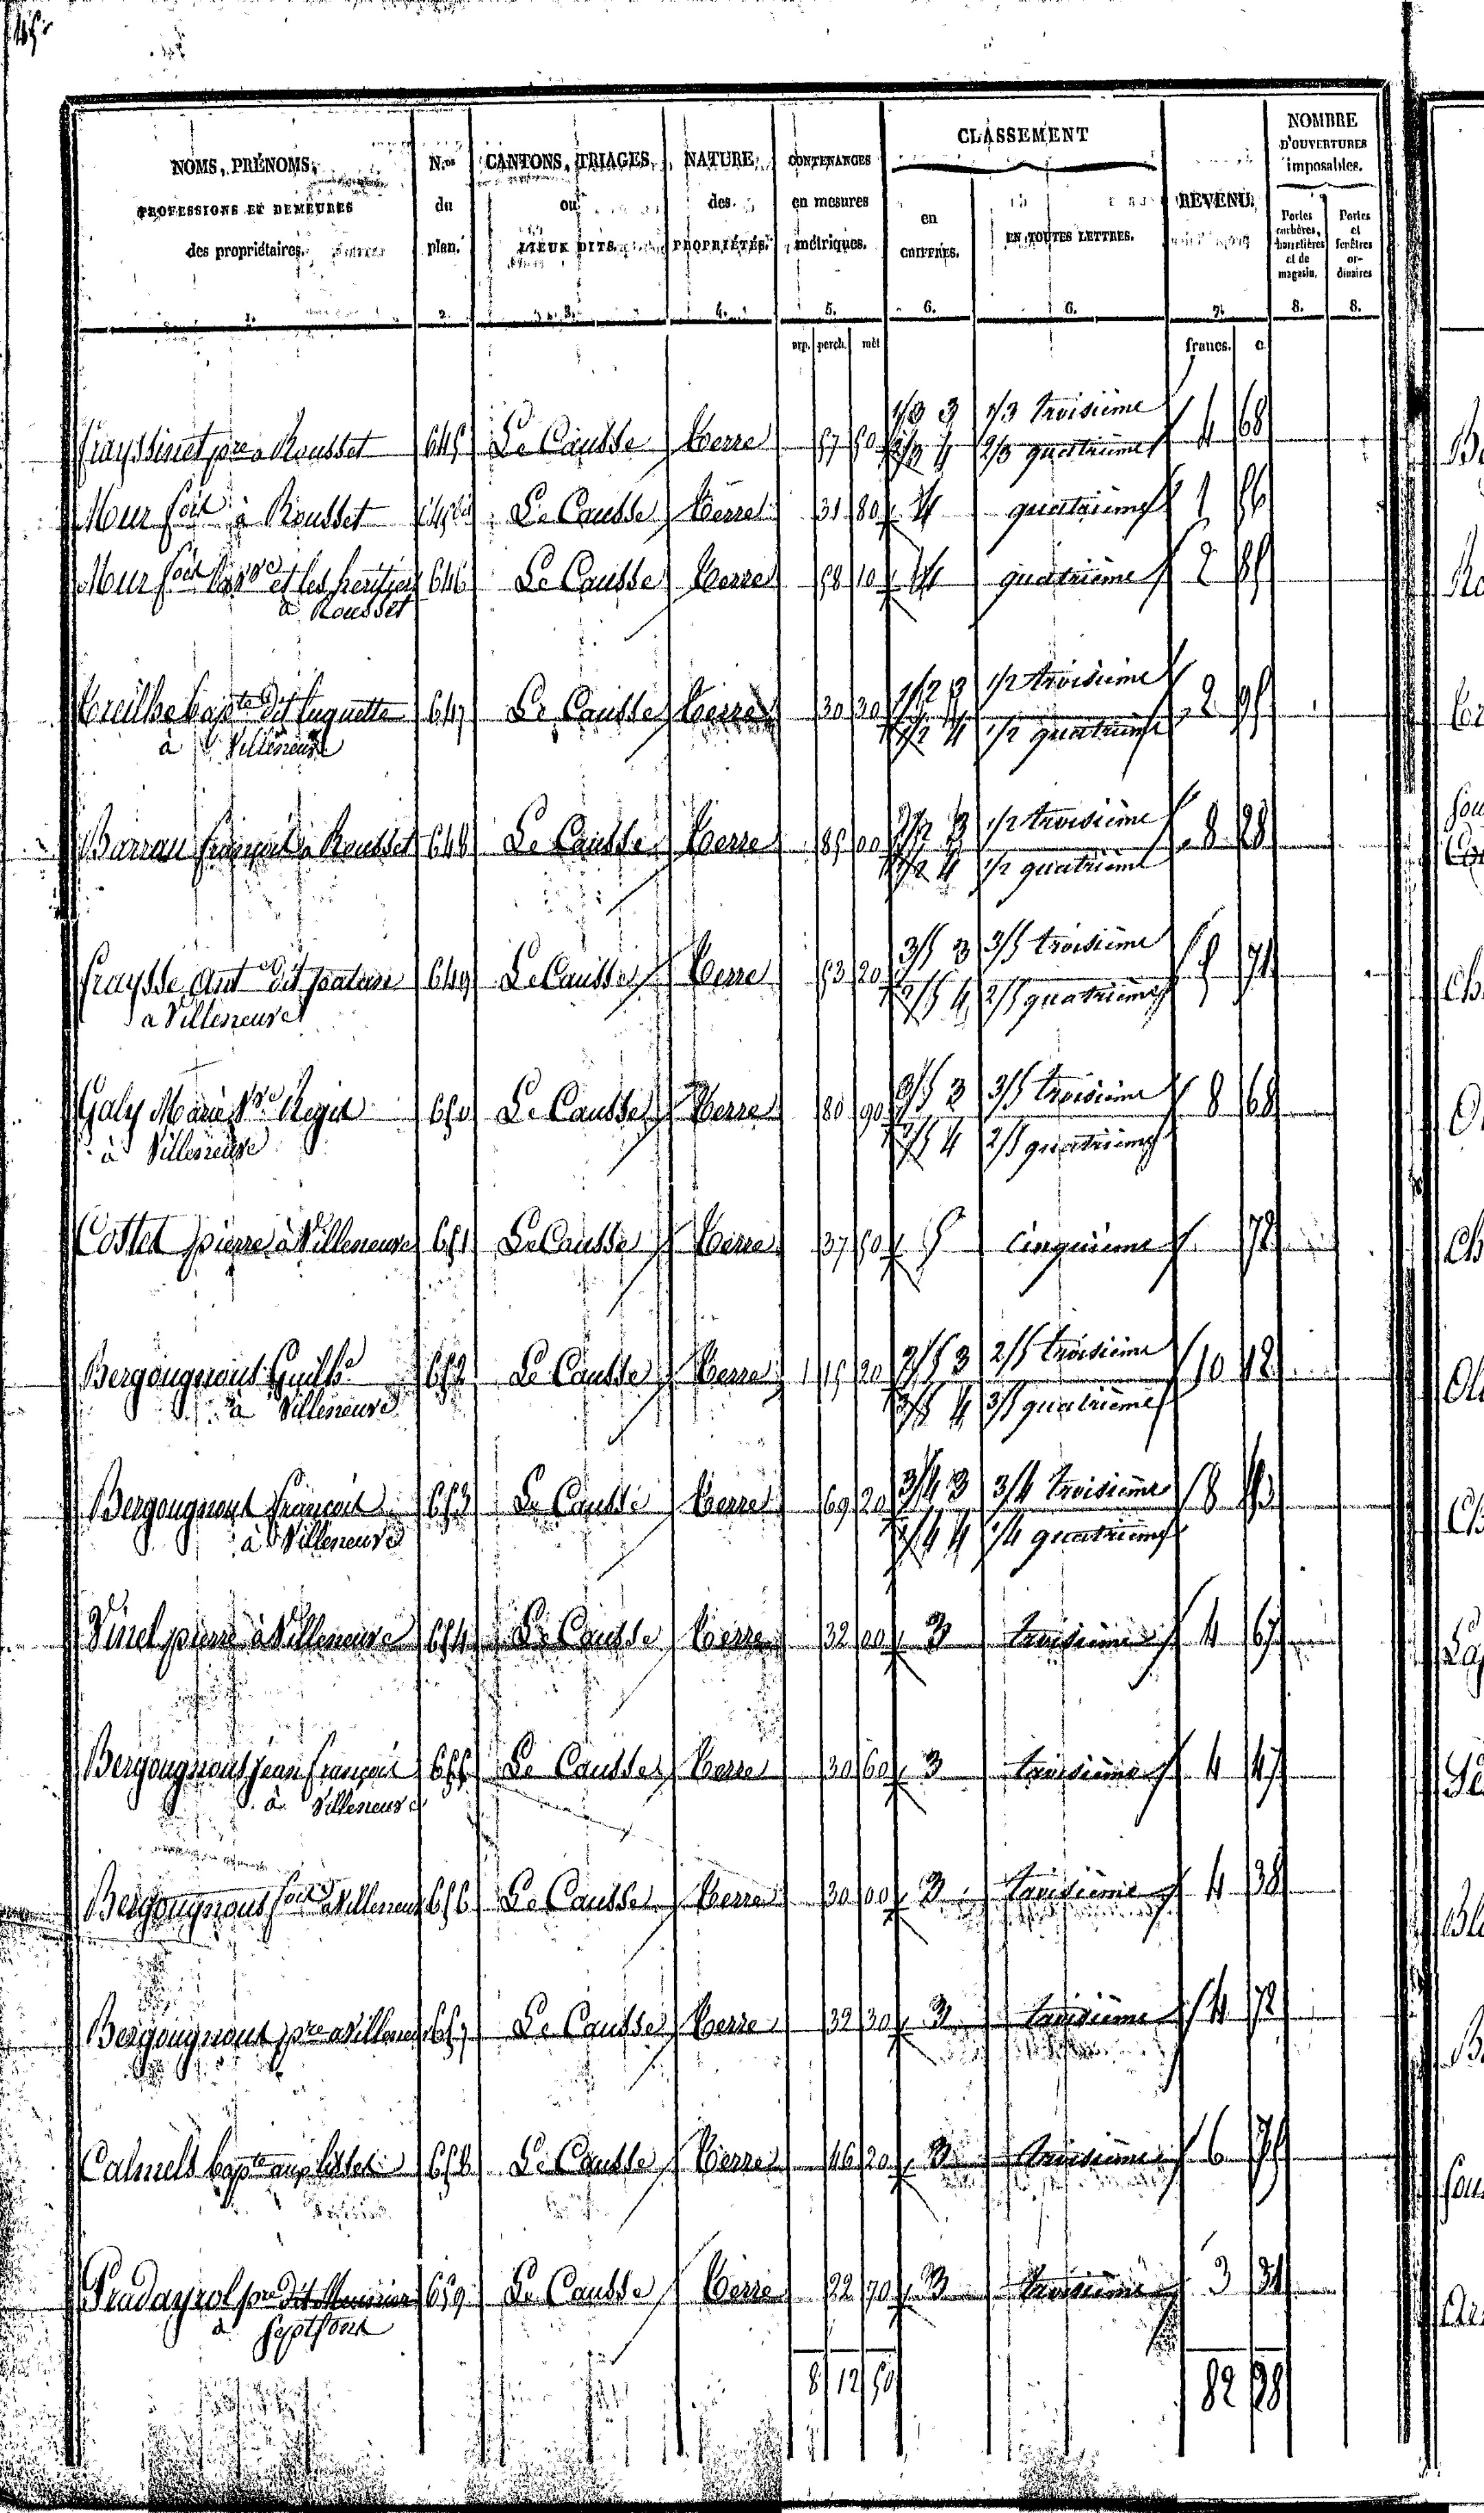 NOMS, PRÉNOMS, PROFESSIONS ET DEMEURES des propriétaires. 1.
N.os du plan. 2.
CANTONS, TRIAGES, ou LIEUX DITS. 3.
NATURE des PROPRIÉTÉS. 4.
CONTENANCES en mesures métriques. 5.
CLASSEMENT
en CHIFFRES. 6.
EN TOUTES LETTRES. 6.
REVENU. 7.
NOMBRE D'OUVERTURES imposables.
Portes cochères, charretières et de magasin. 8.
Portes et fenêtres ordinaires 8.
arp. perch. mèt francs. c.
1/3 3 1/3 troisième
Frayssinet pre a Rousset 645 Le Causse terre 57 50 2/3 4 2/3 quatrième 4 68
Mur fois à Rousset 645 bis Le Causse terre 31 80 4 quatrième 1 56
Mur fois la vve et les heritiers 646 Le Causse terre 58 10 4 quatrième 2 85
à Rousset
1/2 3 1/2 troisième
Treilhe bapte dit 647 Le Causse terre 30 30 1/2 4 1/2 quatrième 2 95
à Villeneuve
1/2 3 1/2 troisième
Barrau françois à Rousset 648 Le Causse terre 85 00 1/2 4 1/2 quatrième 8 28
3/5 3 3/5 troisième
Fraysse Ant dit 649 Le Causse terre 53 20 2/5 4 2/5 quatrième 5 71
a Villeneuve
3/5 3 3/5 troisième
Galy Marie vve Regis 650 Le Causse terre 80 90 2/5 4 2/5 quatrième 8 68
à Villeneuve
Costes pierre à Villeneuve 651 Le Causse terre 37 50 5 cinquième 72
2/5 3 2/5 troisième
Bergougnous Guille 652 Le Causse terre 1 15 20 3/5 4 3/5 quatrième 10 12
à Villeneuve
3/4 3 3/4 troisième
Bergougnous françois 653 Le Causse terre 69 20 1/4 4 1/4 quatrième 8
à Villeneuve
Vinel pierre à Villeneuve 654 Le Causse terre 32 00 3 troisième 4 67
Bergougnous jean françois 655 Le Causse terre 30 60 3 troisième 4 47
à Villeneuve
Bergougnous fois à Villeneuve 656 Le Causse terre 30 00 3 troisième 4 38
Bergougnous pre a Villeneu 657 Le Causse terre 32 30 3 troisième 4 72
Calmels bapte 658 Le Causse terre 46 20 3 troisième 6 75
Pradayrol pre dit Meunier 659 Le Causse terre 22 70 3 troisième 3 31
à Septfons
8 12 50 82 28